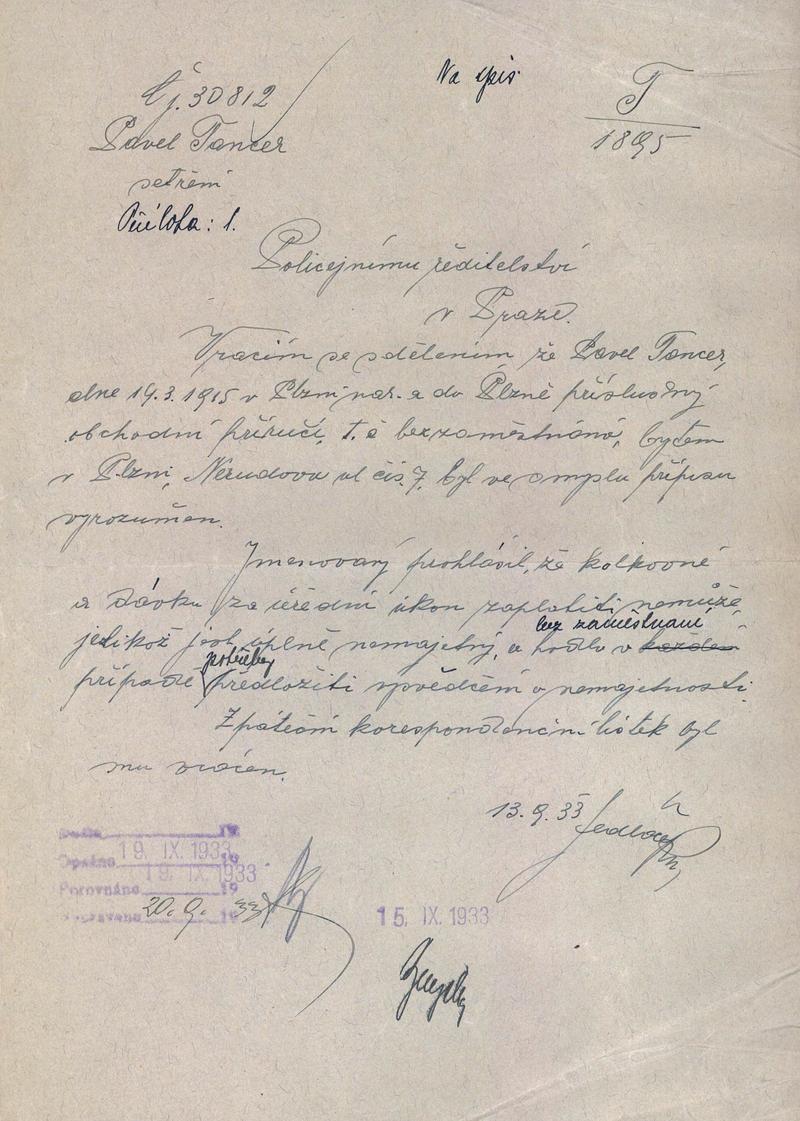 Na spis
Čj. 30812
T
1895
Pavel Tancer
šetření
Příloha: 1.
Policejnímu ředitelství
v Praze.
Vracím se sdělením že Pavel Tancer,
dne 19.3.1915 v Plzni nar. a do Plzně příslušný
obchodní příručí, t. č bezzaměstnání, bytem
v Plzni, Nerudova ul čís. 7, byl ve smyslu přípisu
vyrozuměn.
Jmenovaný prohlásil, že kolkovné
a dávku za úřední úkon zaplatiti nemůže
bez zaměstnání
jelikož jest úplně nemajetný, a hodlá v každém
potřeby
případě předložiti vysvědčení o nemajetnosti.
Zpáteční korespondenční lístek byl
mu vrácen.
13.9.33
Došlo 19
Opsáno 19. IX. 1933 19
Porovnáno 19. IX. 1933 19
Vypraveno 20. 9. 33 19
15. IX. 1933